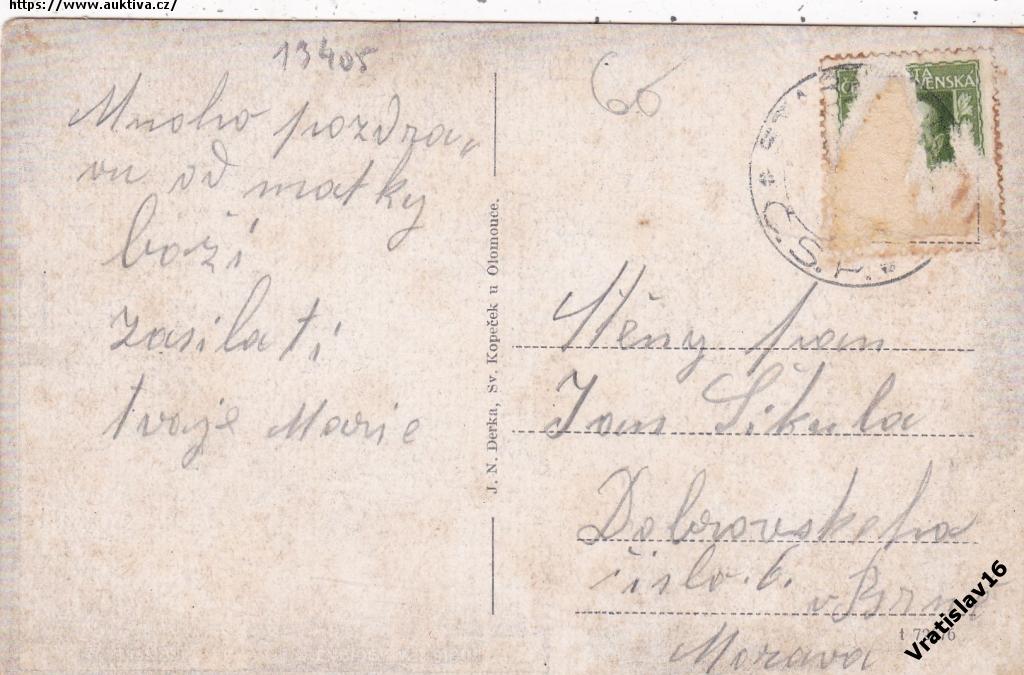 https://www.auktiva.cz/
13405
66
Mnoho pozdra„
vu od matky
boží
zasilati
tvoje Marie
J. N. Derka, Sv. Kopeček u Olomouce.
VENSKÁ
Č.S.P.
pan
Jan Šikula
Dobrovskeho
číslo. 6.
v Brně
Morava
Vratislav16